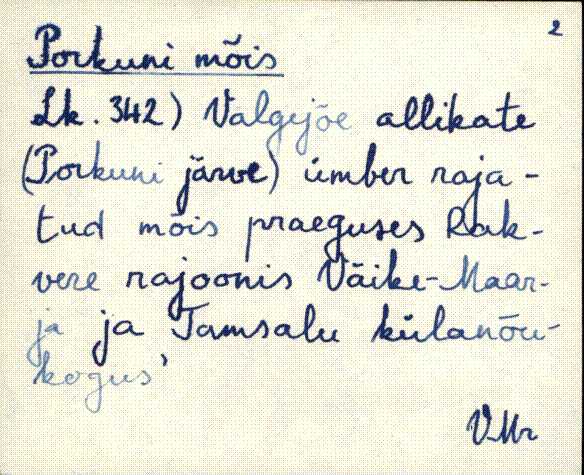 2
Porkuni mõis
Lk. 342) Valgejõe allikate
(Porkuni järve) ümber raja-
tud mõis praeguses Rak-
vere rajoonis Väike-Maar-
ja ja Tamsalu külanõu-
kogus'
VMr